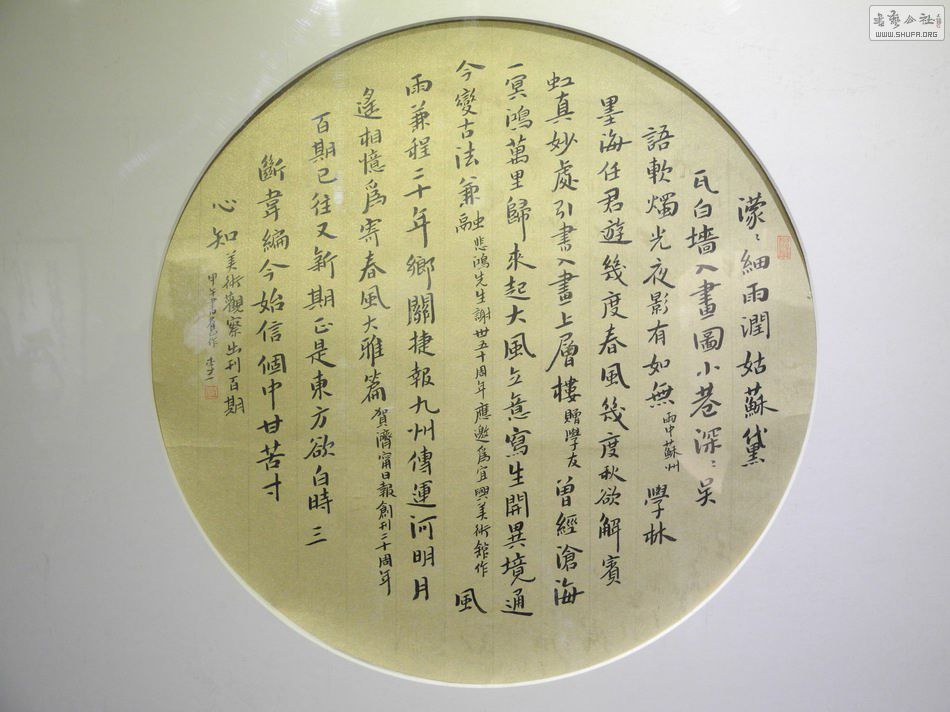 濛〻細雨潤姑蘇黛
瓦白墻入畫圖小巷深〻吴
語軟燭光夜影有如無雨中蘇州 學林
墨海任君遊幾度春風幾度秋欲解賓
虹真妙處引書入畫上層樓贈學友 曾經滄海
一冥鴻萬里歸來起大風立意寫生開異境通
今變古法兼融悲鴻先生謝世五十周年應邀爲宜興美術館作 風
雨兼程二十年鄉關捷報九州傳運河明月
遙相憶爲寄春風大雅篇賀濟甯日報創刊二十周年
百期已往又新期正是東方欲白時三
斷韋編今始信個中甘苦寸
心知美術觀察出刊百期
甲午
書藝公社
WWW.SHUFA.ORG